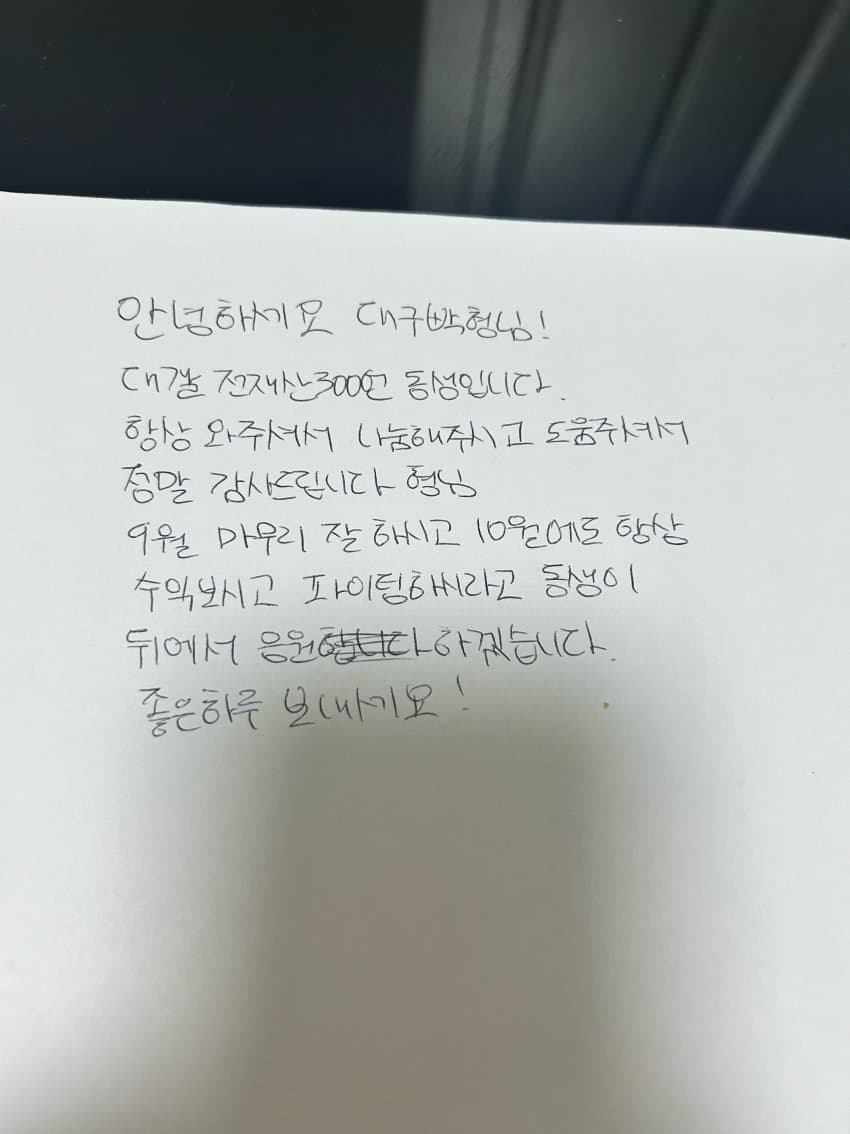 안녕하세요 대구박형님!
대갤 전재산300원 동생입니다.
항상 와주셔서 나눔해주시고 도움주셔서
정말 감사드립니다 형님
9월 마무리 잘 하시고 10월에도 항상
수익보시고 파이팅하시라고 동생이
뒤에서 응원하겠습니다.
좋은하루 보내세요!